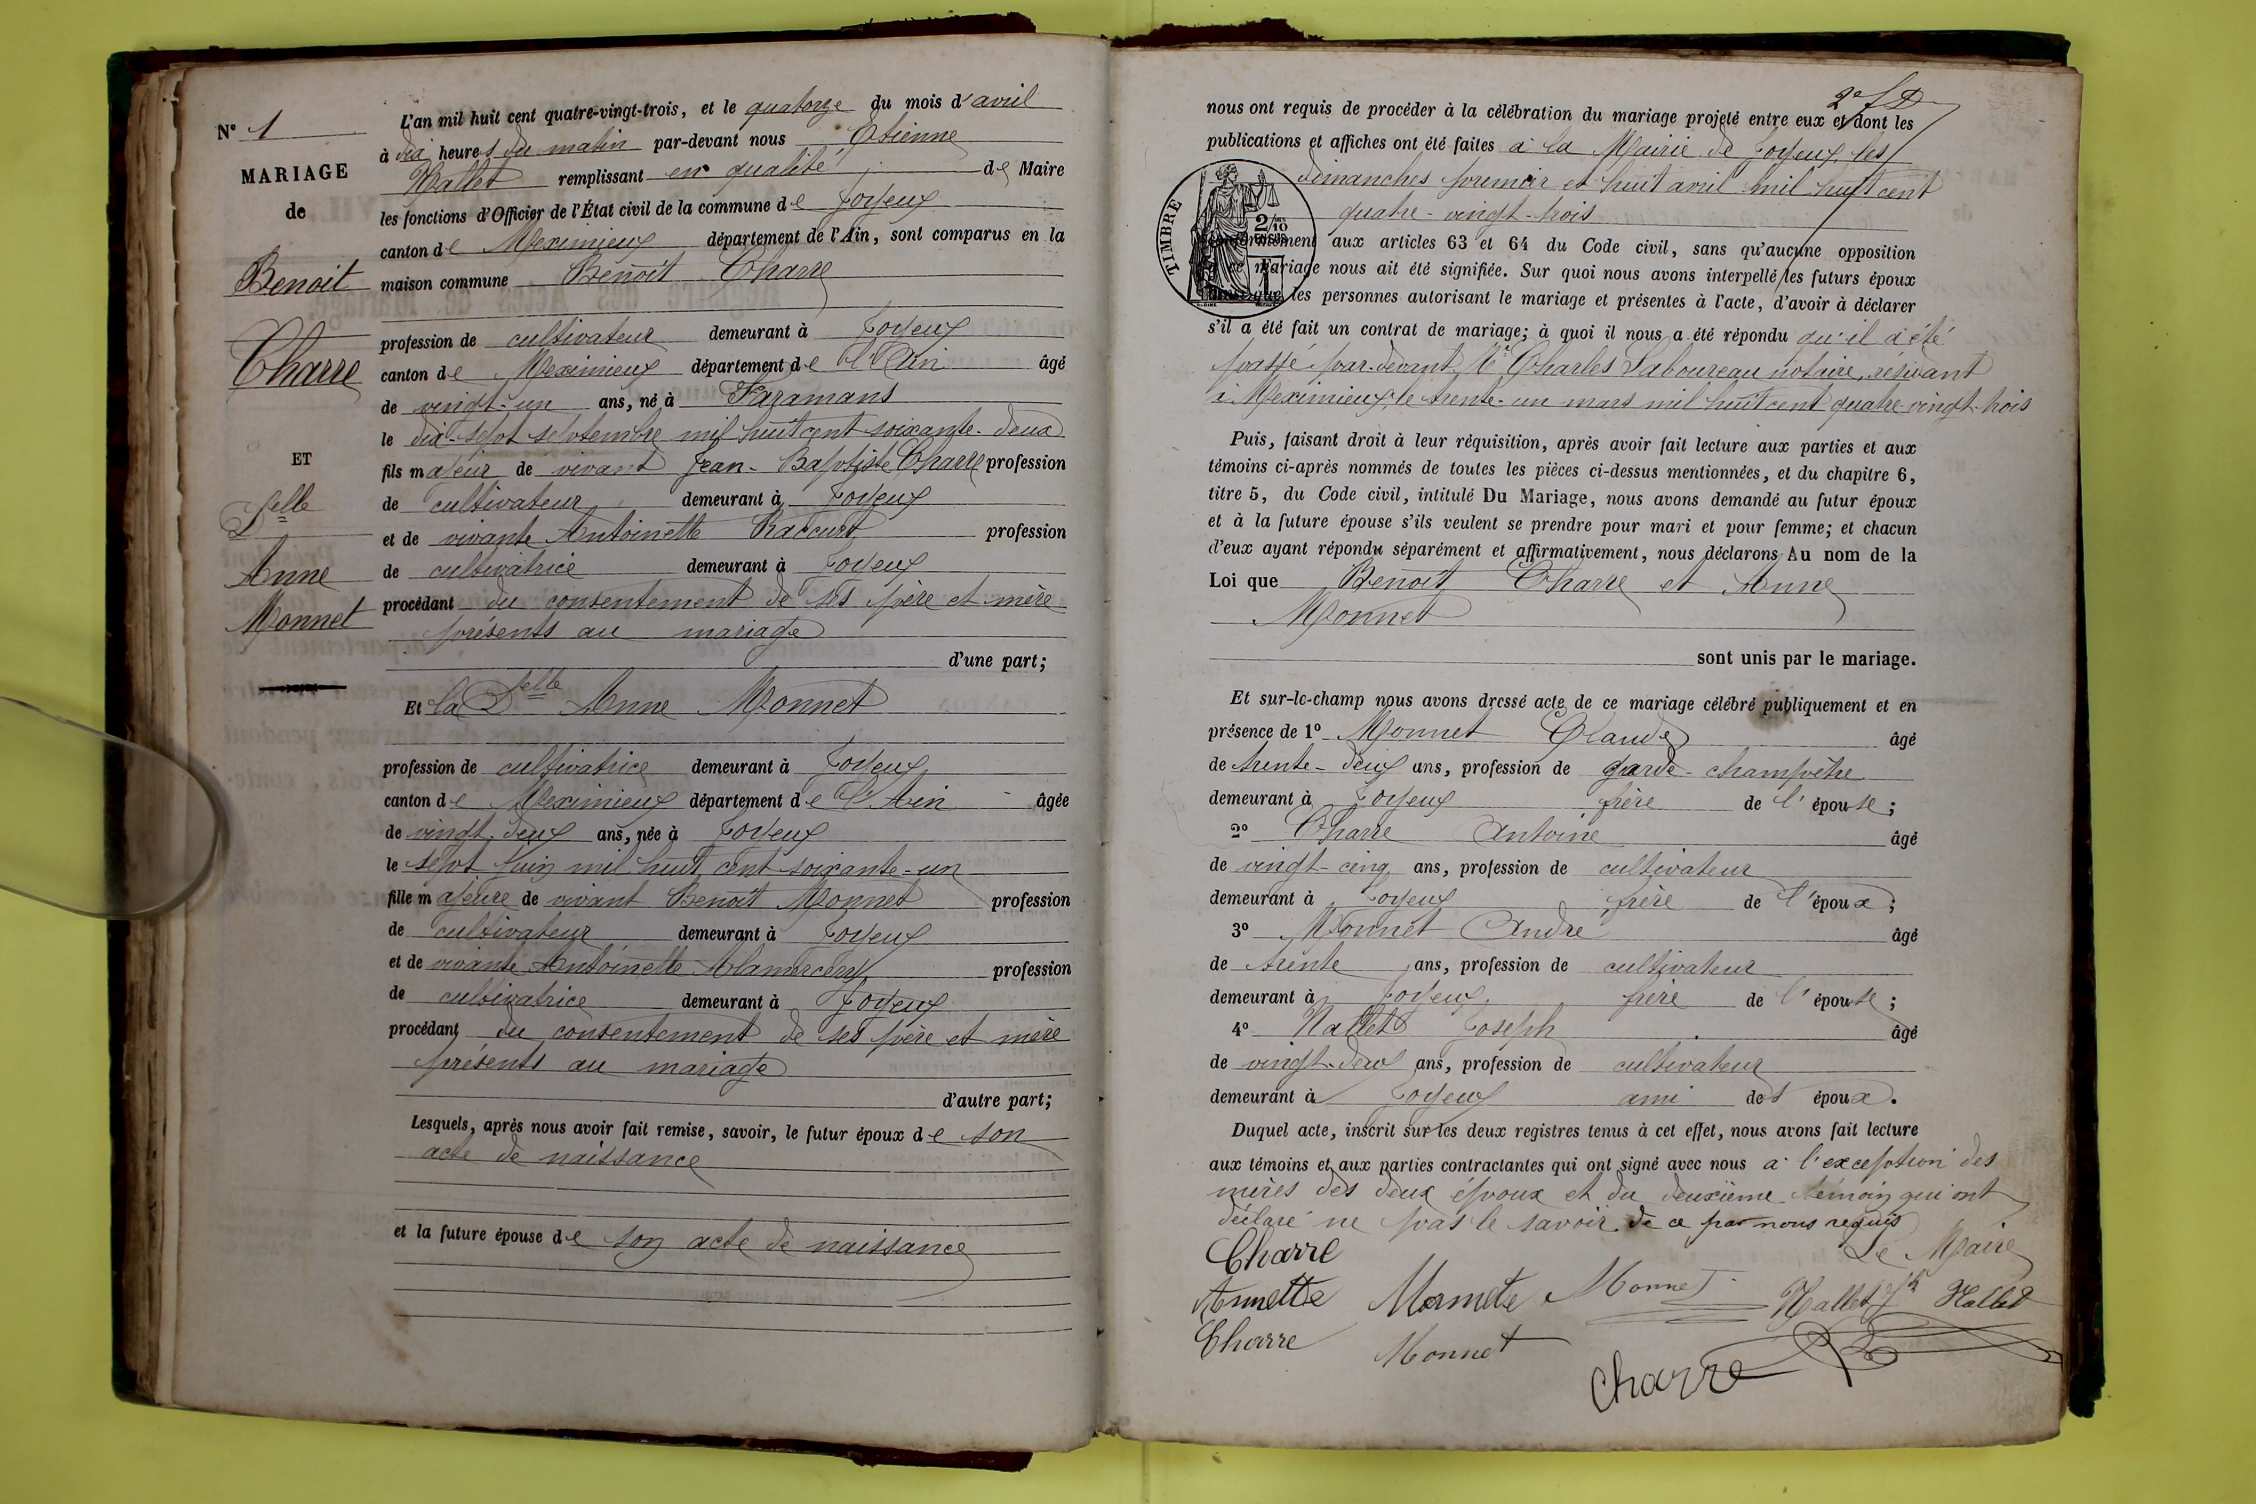 N° 1
MARIAGE
de
Benoit
Charre
ET
Delle
Anne
Monnet
L'an mil huit cent quatre-vingt-trois, et le quatorze du mois d'avril
à dix heures du matin par-devant nous Etienne
Hallet remplissant en qualité de Maire
les fonctions d'Officier de l'État civil de la commune de Joyeux
canton de Meximieux département de l'Ain, sont comparus en la
maison commune Benoit Charre
profession de cultivateur demeurant à Joyeux
canton de Meximieux département de l'Ain âgé
de vingt-un ans, né à Faramans
le dix-sept septembre mil huit cent soixante-deux
fils majeur de vivant Jean-Baptiste Charre profession
de cultivateur demeurant à Joyeux
et de vivante Antoinette profession
de cultivatrice demeurant à Joyeux
procédant du consentement de ses père et mère
présents au mariage
d'une part;
Et la Delle Anne Monnet
profession de cultivatrice demeurant à Joyeux
canton de Meximieux département de l'Ain âgée
de vingt-deux ans, née à Joyeux
le sept juin mil huit cent soixante-un
fille majeure de vivant Benoit Monnet profession
de cultivateur demeurant à Joyeux
et de vivante Antoinette Alamercery profession
de cultivatrice demeurant à Joyeux
procédant du consentement de ses père et mère
présents au mariage
d'autre part;
Lesquels, après nous avoir fait remise, savoir, le futur époux de son
acte de naissance
et la future épouse de son acte de naissance
nous ont requis de procéder à la célébration du mariage projeté entre eux et dont les
publications et affiches ont été faites à la Mairie de Joyeux les
dimanches premier et huit avril mil huit cent
quatre-vingt-trois
TIMBRE
2/10
EN SUS
conformément aux articles 63 et 64 du Code civil, sans qu'aucune opposition
à ce mariage nous ait été signifiée. Sur quoi nous avons interpellé les futurs époux
ainsi que les personnes autorisant le mariage et présentes à l'acte, d'avoir à déclarer
s'il a été fait un contrat de mariage; à quoi il nous a été répondu qu'il a été
passé par-devant Me Charles Saboureau notaire, résidant
à Meximieux, le trente-un mars mil huit cent quatre-vingt-trois
Puis, faisant droit à leur réquisition, après avoir fait lecture aux parties et aux
témoins ci-après nommés de toutes les pièces ci-dessus mentionnées, et du chapitre 6,
titre 5, du Code civil, intitulé Du Mariage, nous avons demandé au futur époux
et à la future épouse s'ils veulent se prendre pour mari et pour femme; et chacun
d'eux ayant répondu séparément et affirmativement, nous déclarons Au nom de la
Loi que Benoit Charre et Anne
Monnet
sont unis par le mariage.
Et sur-le-champ nous avons dressé acte de ce mariage célébré publiquement et en
présence de 1° Monnet Claude âgé
de trente-deux ans, profession de garde-champêtre
demeurant à Joyeux frère de l'épouse;
2° Charre Antoine âgé
de vingt-cinq ans, profession de cultivateur
demeurant à Joyeux frère de l'époux;
3° Monnet André âgé
de trente ans, profession de cultivateur
demeurant à Joyeux frère de l'épouse;
4° Hallet Joseph âgé
de vingt-deux ans, profession de cultivateur
demeurant à Joyeux ami des époux.
Duquel acte, inscrit sur les deux registres tenus à cet effet, nous avons fait lecture
aux témoins et aux parties contractantes qui ont signé avec nous à l'exception des
mères des deux époux et du deuxième témoin qui ont
déclaré ne pas le savoir de ce par nous requis
Le Maire
Charre
Annette Monnet Monnet Hallet Jh Hallet
Charre Monnet
Charre